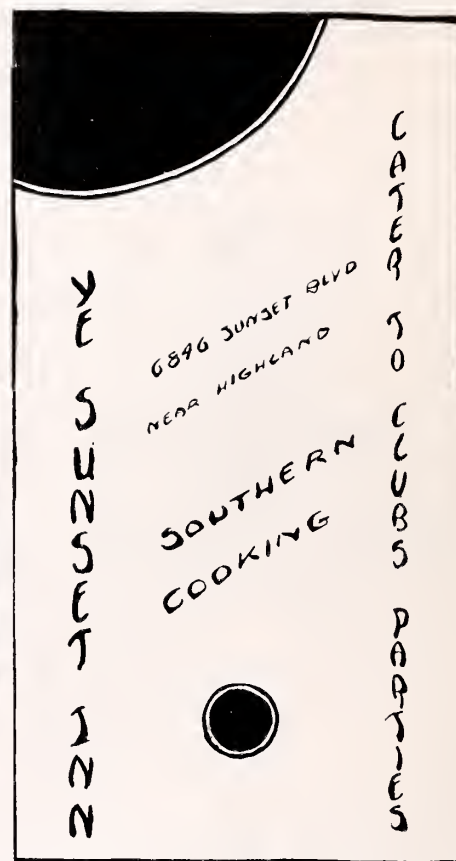 YE SUNSET INN
6846 SUNSET BLVD
NEAR HIGHLAND
SOUTHERN
COOKING
CATER TO CLUBS PARTIES